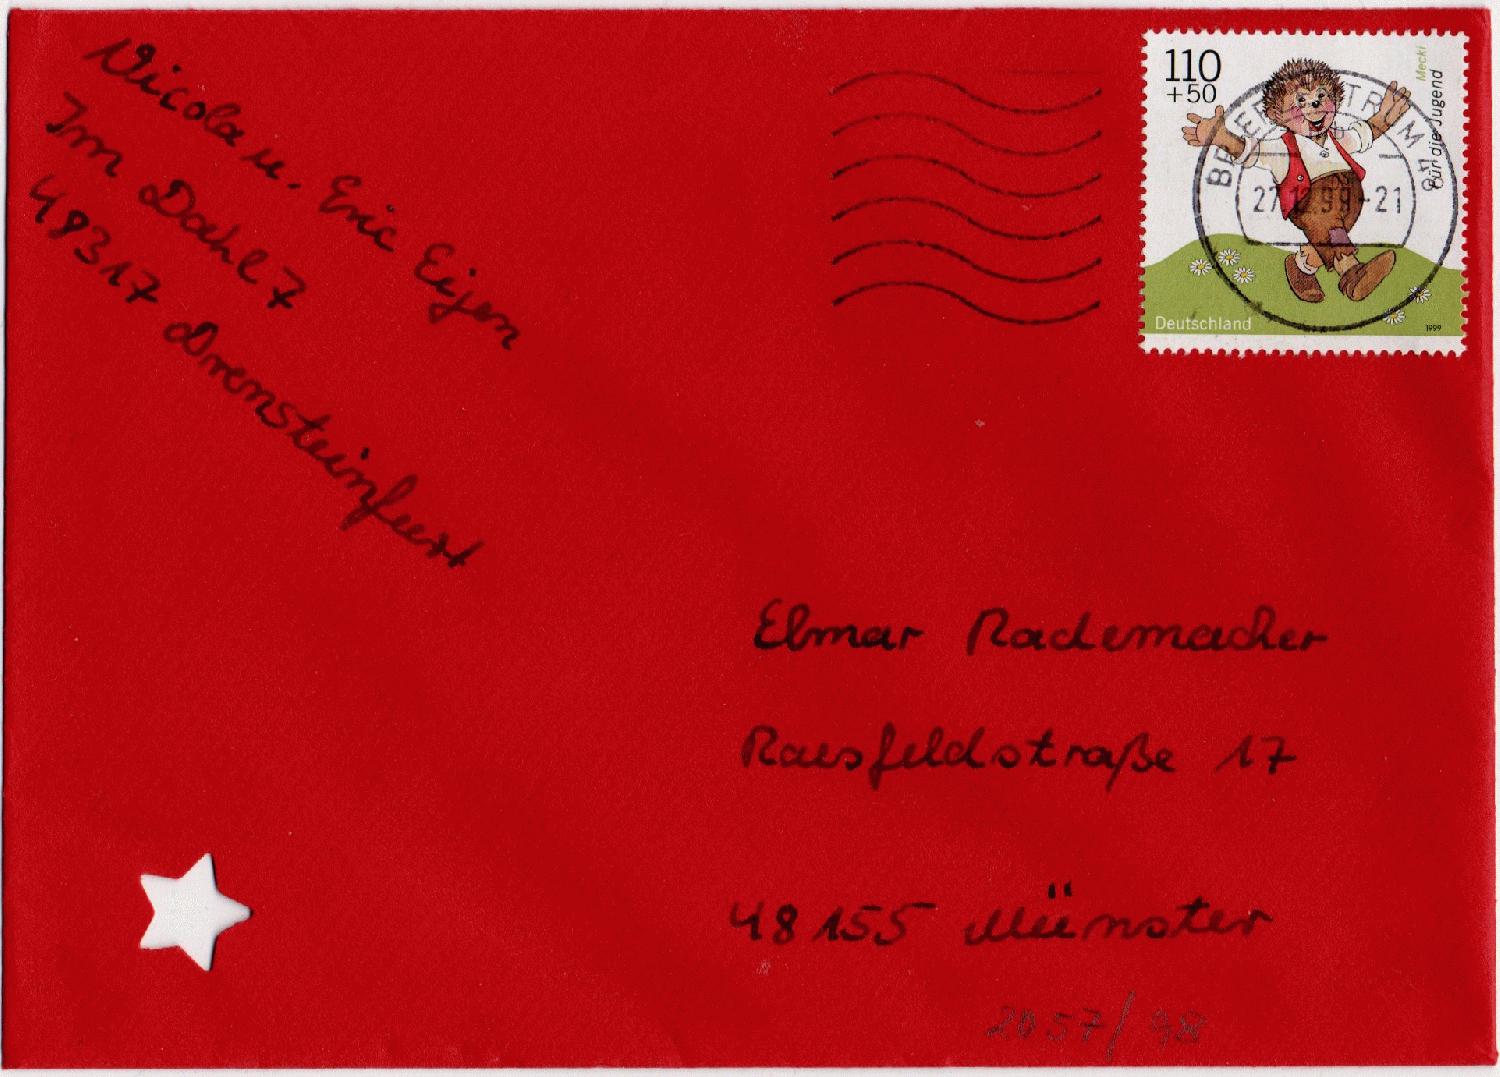 Nicola u. Eric Eijen
Im Dahl 7
48317 Drensteinfurt
110
+50
Mecki
Für die Jugend
BRIEFZENTRUM 48
27.12.99-21
Deutschland
1999
Elmar Rademacher
Raesfeldstraße 17
48155 Münster
2057/98